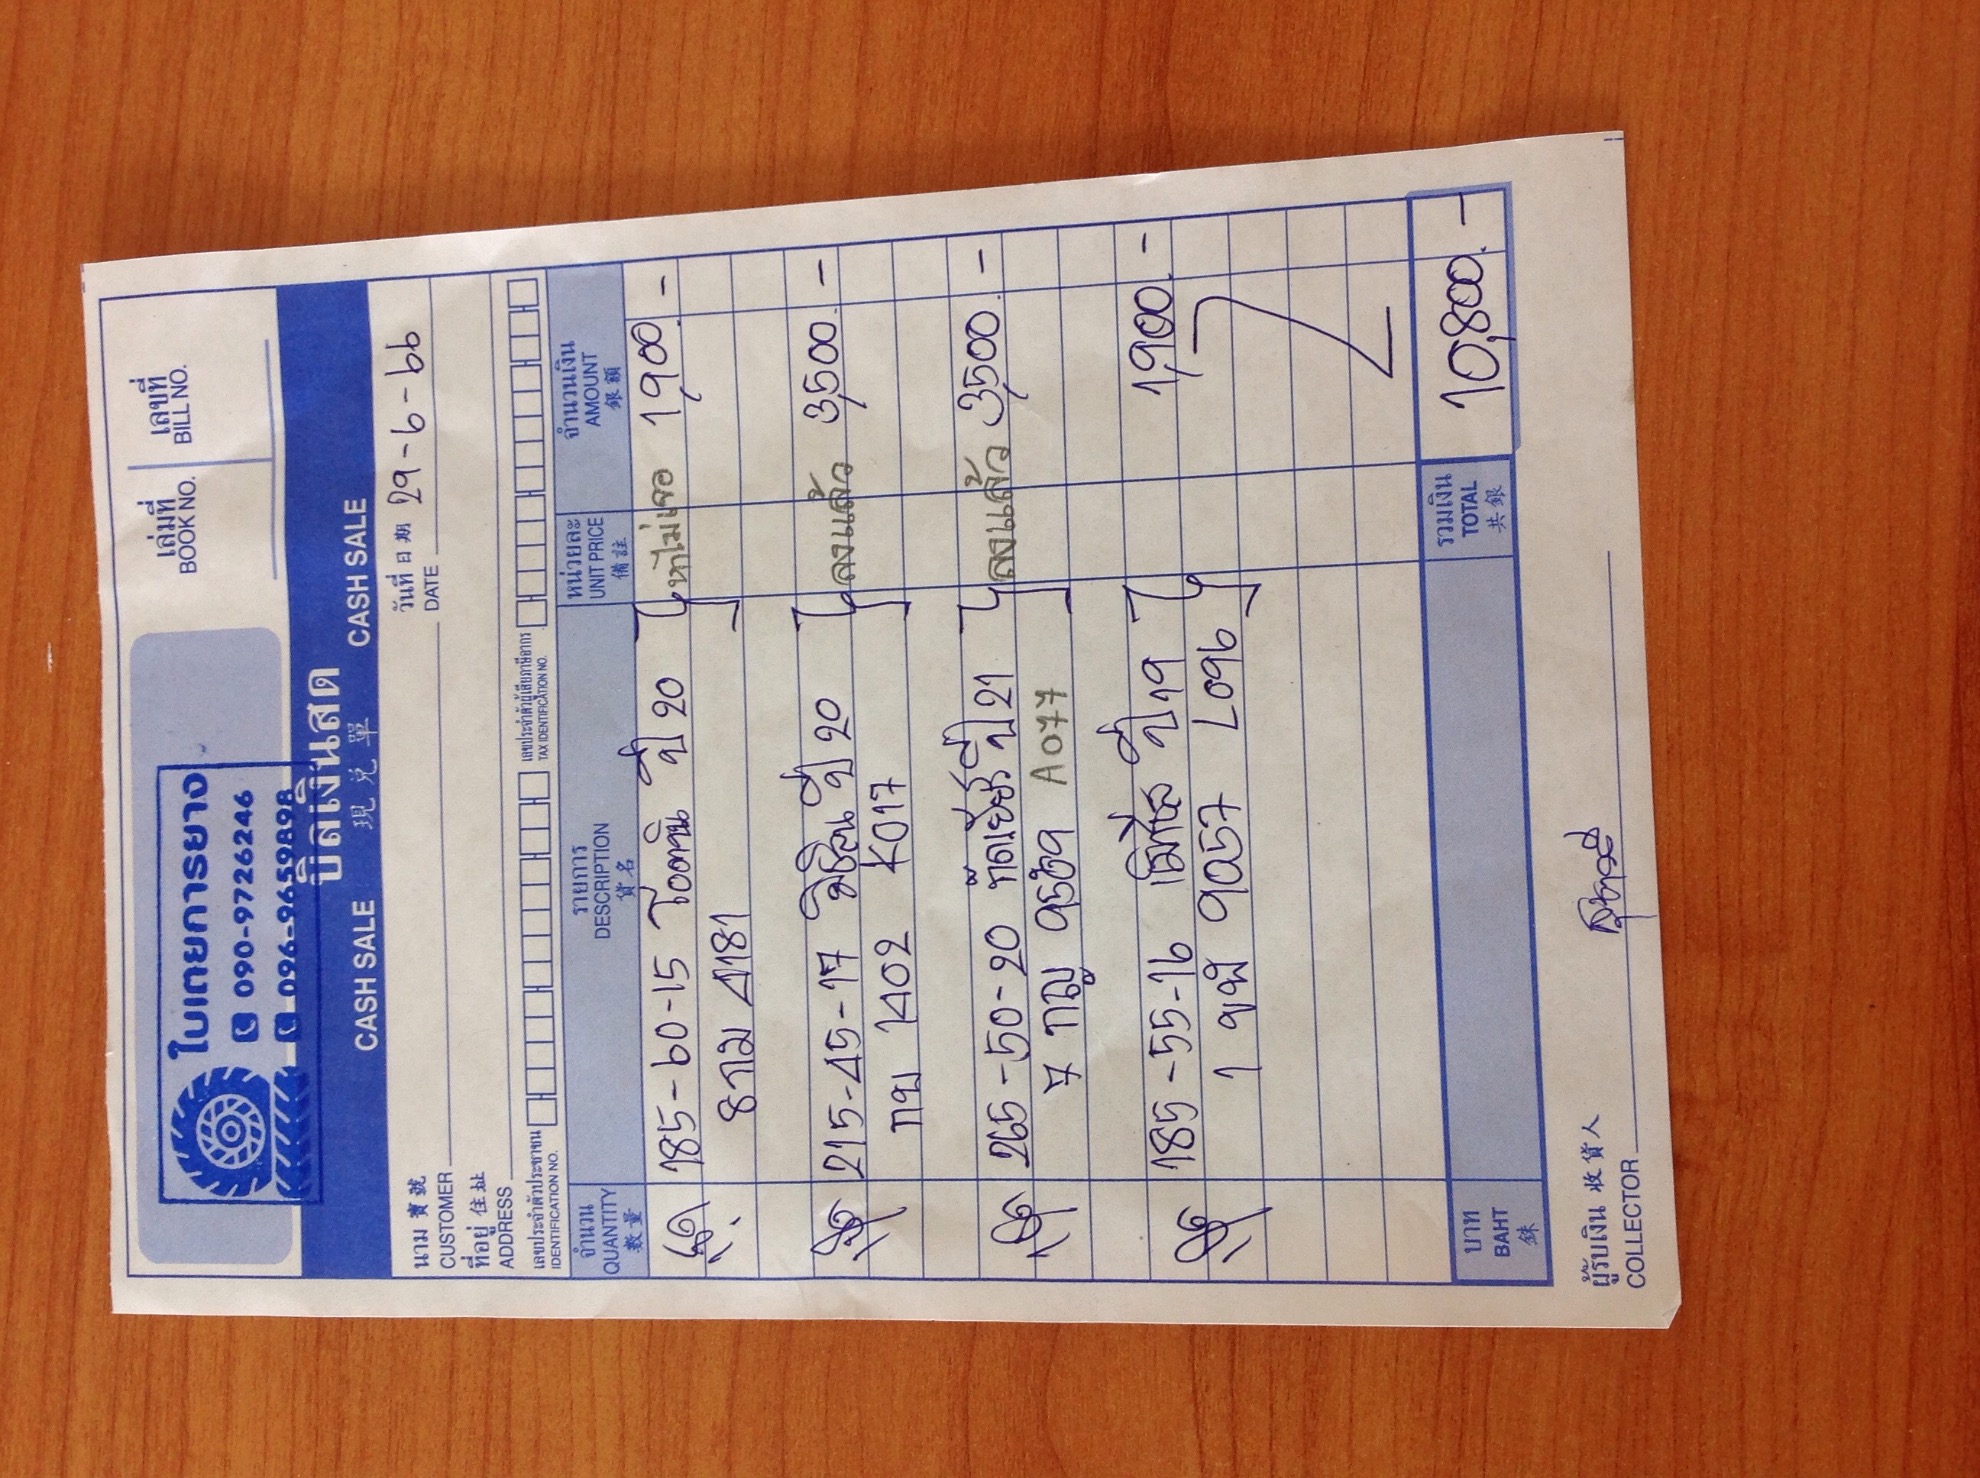 ใบเตยการยาง
090-9726246
096-9659898
เล่มที่
BOOK NO.
เลขที่
BILL NO.
บิลเงินสด
CASH SALE 現兑單 CASH SALE
นาม 寶號
CUSTOMER
วันที่ 日期 29-6-66
DATE
ที่อยู่ 住址
ADDRESS
เลขประจำตัวประชาชน
IDENTIFICATION NO.
เลขประจำตัวผู้เสียภาษีอากร
TAX IDENTIFICATION NO.
จำนวน
QUANTITY
數量
รายการ
DESCRIPTION
貨名
หน่วยละ
UNIT PRICE
備註
จำนวนเงิน
AMOUNT
銀額
185-60-15 โอตานิ ปี 20 หาไม่เจอ 1,900.-
8 กาม 4181
215-45-17 มิชลิน ปี 20 ลงแล้ว 3,500.-
กบ 1402 K017
265-50-20 กู๊ดเยียร์ ปี 21 ลงแล้ว 3,500.-
7 กญ A077
185-55-16 ปี 19 1,900.-
1 ขฬ 9057 L096
บาท
BAHT
銖
รวมเงิน
TOTAL
共銀
10,800.-
ผู้รับเงิน 收貨人
COLLECTOR